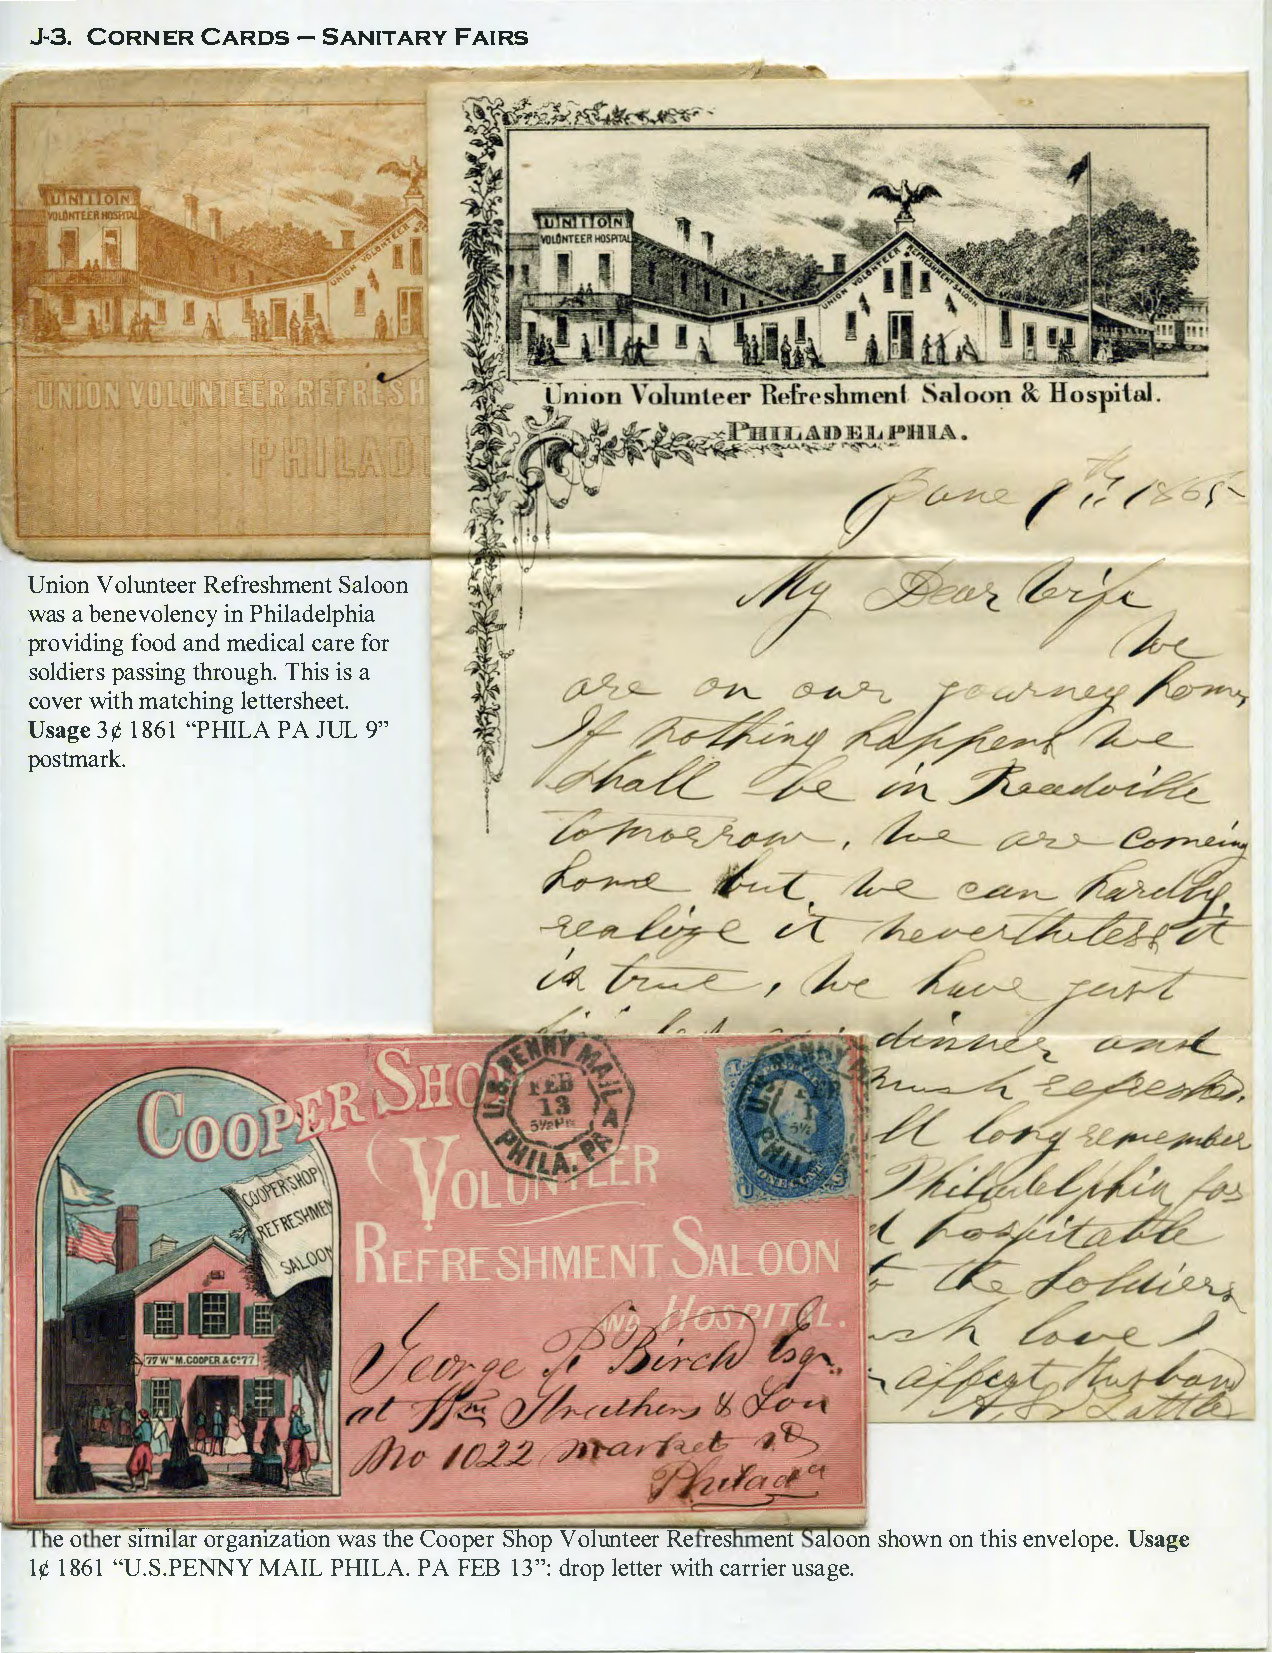 J-3. CORNER CARDS – SANITARY FAIRS
UNION
VOLUNTEER HOSPITAL
UNION VOLUNTEER
UNION VOLUNTEER REFRESH
PHILAD
UNION
VOLUNTEER HOSPITAL
UNION VOLUNTEER REFRESHMENT SALOON
Union Volunteer Refreshment Saloon & Hospital.
PHILADELPHIA.
June 9th 1865
My Dear Wife
We
are on our journey home,
If nothing happens we
shall be in Readville
tomorrow, We are comeing
home but we can hardly
realize it nevertheless it
is true, We have just
dinner and
much refreshed.
ll long remember
Philadelphia for
d hospitable
to the soldiers
love I
affect Husband
Union Volunteer Refreshment Saloon
was a benevolency in Philadelphia
providing food and medical care for
soldiers passing through. This is a
cover with matching lettersheet.
Usage 3¢ 1861 “PHILA PA JUL 9”
postmark.
COOPER SHOP
VOLUNTEER
REFRESHMENT SALOON
AND HOSPITAL.
COOPER SHOP
REFRESHMEN
SALOON
77 Wm M. COOPER & Co 77
U.S. PENNY MAIL
FEB
13
5½ PM
A
PHILA. PA
U.S. PENNY
PHIL
ONE CENT
George P. Birch Esqr.
at Wm Struthers & Son
No 1022 market st
Philada
The other similar organization was the Cooper Shop Volunteer Refreshment Saloon shown on this envelope. Usage
1¢ 1861 “U.S.PENNY MAIL PHILA. PA FEB 13”: drop letter with carrier usage.